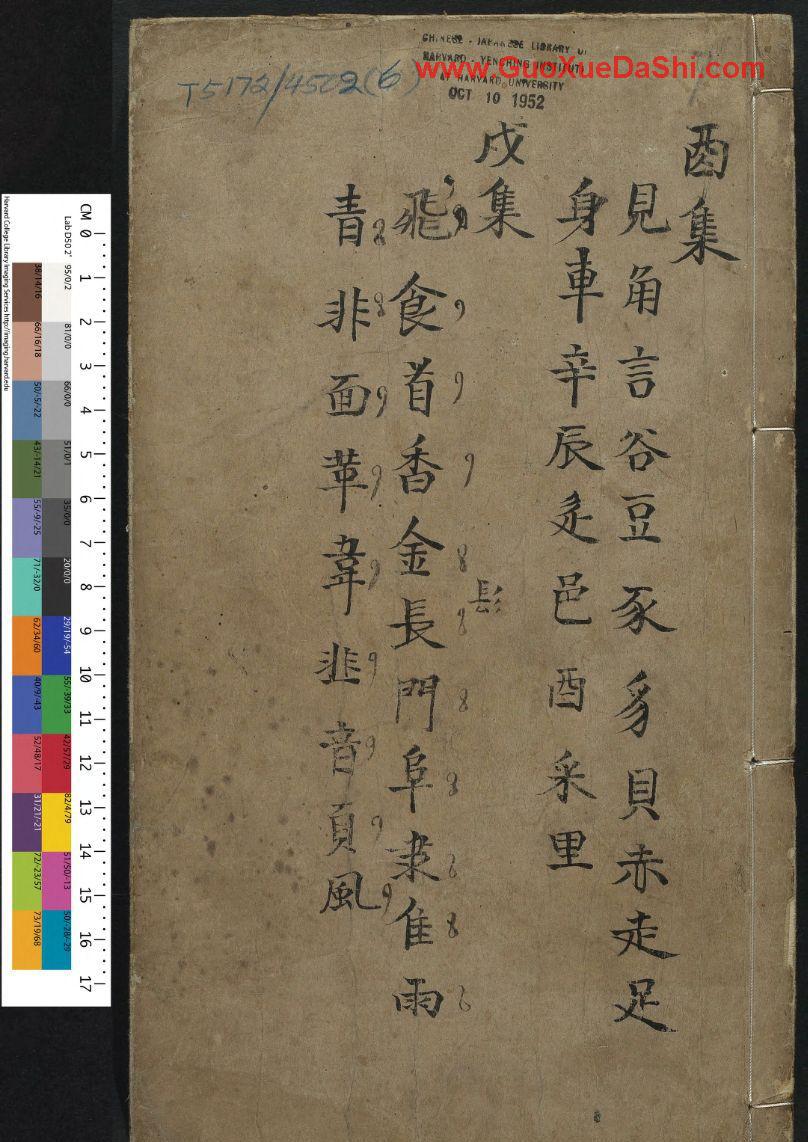 酉集
見角言谷豆豕豸貝赤走足
身車辛辰辵邑酉釆里
戌集
飛食首香金長門阜隶隹雨
镸彡
青非面革韋韭音頁風
T5172/4502(6)
CHINESE - JAPANESE LIBRARY OF
HARVARD - YENCHING INSTITUTE
AT HARVARD UNIVERSITY
OCT 10 1952
www.GuoXueDaShi.com
CM 0 1 2 3 4 5 6 7 8 9 10 11 12 13 14 15 16 17
Lab D50 2° 95/0/2 81/0/0 66/0/0 51/0/1 35/0/0 20/0/0 29/19/-54 55/-39/33 42/57/29 82/4/79 51/50/-13 50/-28/-29
38/14/16 66/16/18 50/-5/-22 43/-14/21 55/-9/-25 71/-32/0 62/34/60 40/9/-43 52/48/17 31/21/-21 72/-23/57 73/19/68
Harvard College Library Imaging Services http://imaging.harvard.edu